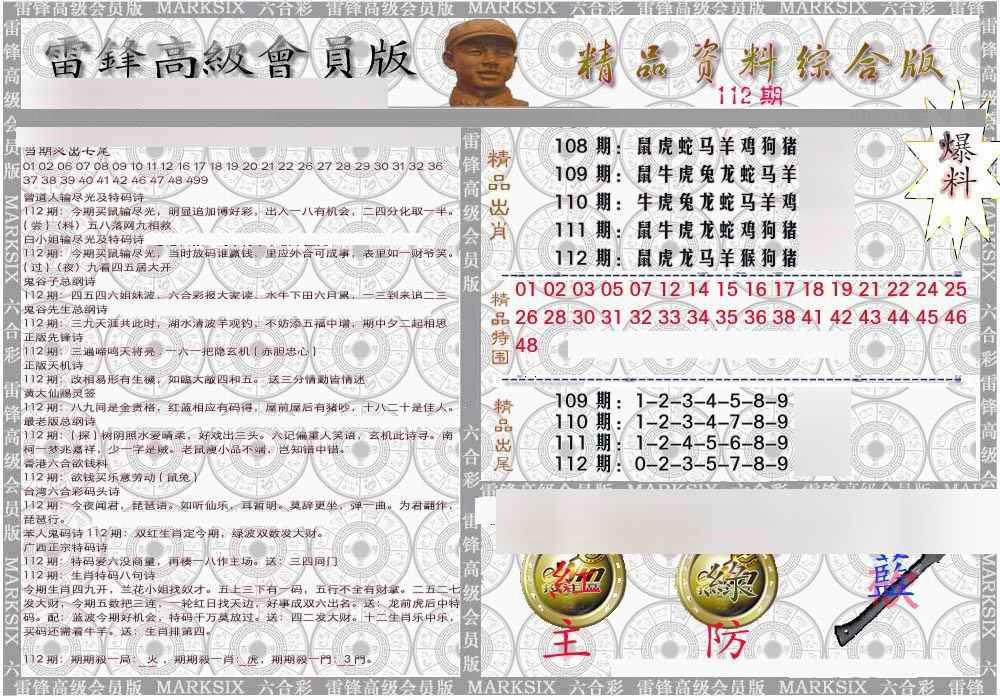 雷锋高级会员版 MARKSIX 六合彩 雷锋高级会员版 MARKSIX 六合彩 雷锋高级会员版 MARKSIX 六合彩 雷锋高级会员版
雷鋒高級會員版
精品资料综合版
112 期
爆料
01 02 06 07 08 09 10 11 12 16 17 18 19 20 21 22 26 27 28 29 30 31 32 36
37 38 39 40 41 42 46 47 48 499
曾道人输尽光及特码诗
112 期：今期买鼠输尽光，明显追加博好彩，出入一八有机会，二四分化取一半。
{ 尝 }（料）五八落网九相救
白小姐输尽光及特码诗
112 期：今期买鼠输尽光，当时放码谁赢钱。里应外合可成事，表里如一财爷笑。
{ 过 }（夜）九看四五居大开
鬼谷子总纲诗
112 期：四五四六姐妹波，六合彩报大家读。水牛下田六月累，一三到来追二三
鬼谷先生总纲诗
112 期：三九天涯共此时，湖水清波羊观钓，不妨添五福中增，期中夕二起相思
正版先锋诗
112 期：三遍啼鸣天将亮，一六一把隐玄机 { 赤胆忠心 }
正版天机诗
112 期：改相易形有生機，如臨大敵四和五。送三分情勤皆情迷
黄大仙赐灵签
112 期：八九同是金贵格，红蓝相应有码得，屋前屋后有猪吵，十八二十是佳人。
最老版总纲诗
112 期：{ 探 } 树阴照水爱晴柔，好戏出三头。六记偏重人笑语，玄机此诗寻。南
柯一梦兆嘉祥，少一字是贼。老鼠瘦小品不端，岂知错中错。
香港六合欲钱料
112 期：欲钱买乐意劳动 { 鼠兔 }
台湾六合彩码头诗
112 期：今夜闻君，琵琶语。如听仙乐，耳暂明。莫辞更坐，弹一曲。为君翻作，
琵琶行。
笨人鬼码诗 112 期：双红生肖定今期，绿波双数发大财。
广西正宗特码诗
112 期：特码爱六没商量，再楼一八作主场。送：三四同门
112 期：生肖特码八句诗
今期生肖四九开，兰花小姐找奴才。五上三下有一码，五行不全有财拿。二五二七
发大财，今期五数把三连，一轮红日找天边，好事成双六出名。送：龙前虎后中特
码。配：蓝波今期好机会，特码千万莫放过。送：四二发大财。十二生肖乐中乐，
买码还需看牛羊。送：生肖排第四。
112 期：期期殺一局：火 ，期期殺一肖：虎，期期殺一門：3 門。
精品出肖
108 期：鼠虎蛇马羊鸡狗猪
109 期：鼠牛虎兔龙蛇马羊
110 期：牛虎兔龙蛇马羊鸡
111 期：鼠牛虎龙蛇鸡狗猪
112 期：鼠虎龙马羊猴狗猪
精品特围
01 02 03 05 07 12 14 15 16 17 18 19 21 22 24 25
26 28 30 31 32 33 34 35 36 38 41 42 43 44 45 46
48
精品出尾
109 期：1-2-3-4-5-8-9
110 期：1-2-3-4-7-8-9
111 期：1-2-4-5-6-8-9
112 期：0-2-3-5-7-8-9
紅 綠 藍
主 防
雷锋高级会员版 MARKSIX 六合彩 雷锋高级会员版 MARKSIX 六合彩 雷锋高级会员版 MARKSIX 六合彩 雷锋高级会员版